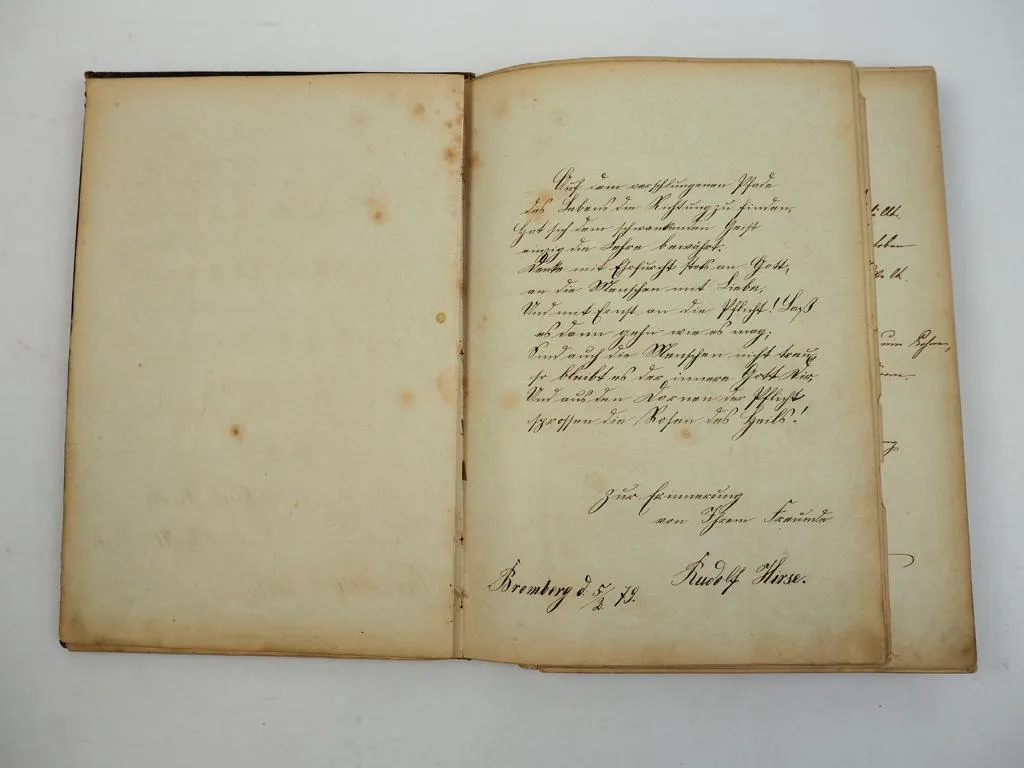 Auf dem verschlungenen Pfade
des Lebens die Richtung zu finden,
Hat sich dem schwankenden Geist
einzig die Lehre bewährt:
Denke mit Ehrfurcht stets an Gott,
an die Menschen mit Liebe,
Und mit Ernst an die Pflicht! Laß
es dann gehn wie es mag;
Sind auch die Menschen nicht treu,
so bleibt es der innere Gott Dir,
Und aus den Dornen der Pflicht
sprossen die Rosen des Heils!
Zur Erinnerung
von Ihrem Freunde
Rudolf Hirse.
Bromberg d. 5/2. 79.